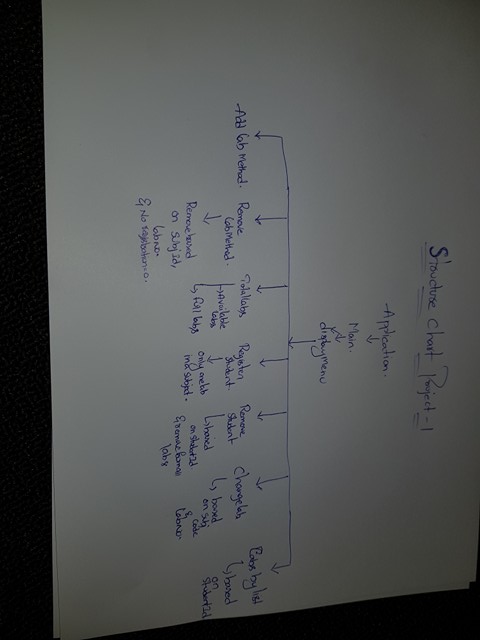 Structure Chart Project-1
-Application.
Main.
display menu
-Add lab Method.
Remove
lab Method.
Remove based
on subj Id,
lab no.
& No registration.
Total labs
Available
labs
full labs
Register
Student.
only one lab
in a subject.
Remove
Student
based
on student Id
& remove from all
labs
Change lab
based
on subj
code
&
lab no.
labs by list
based
on
Student Id